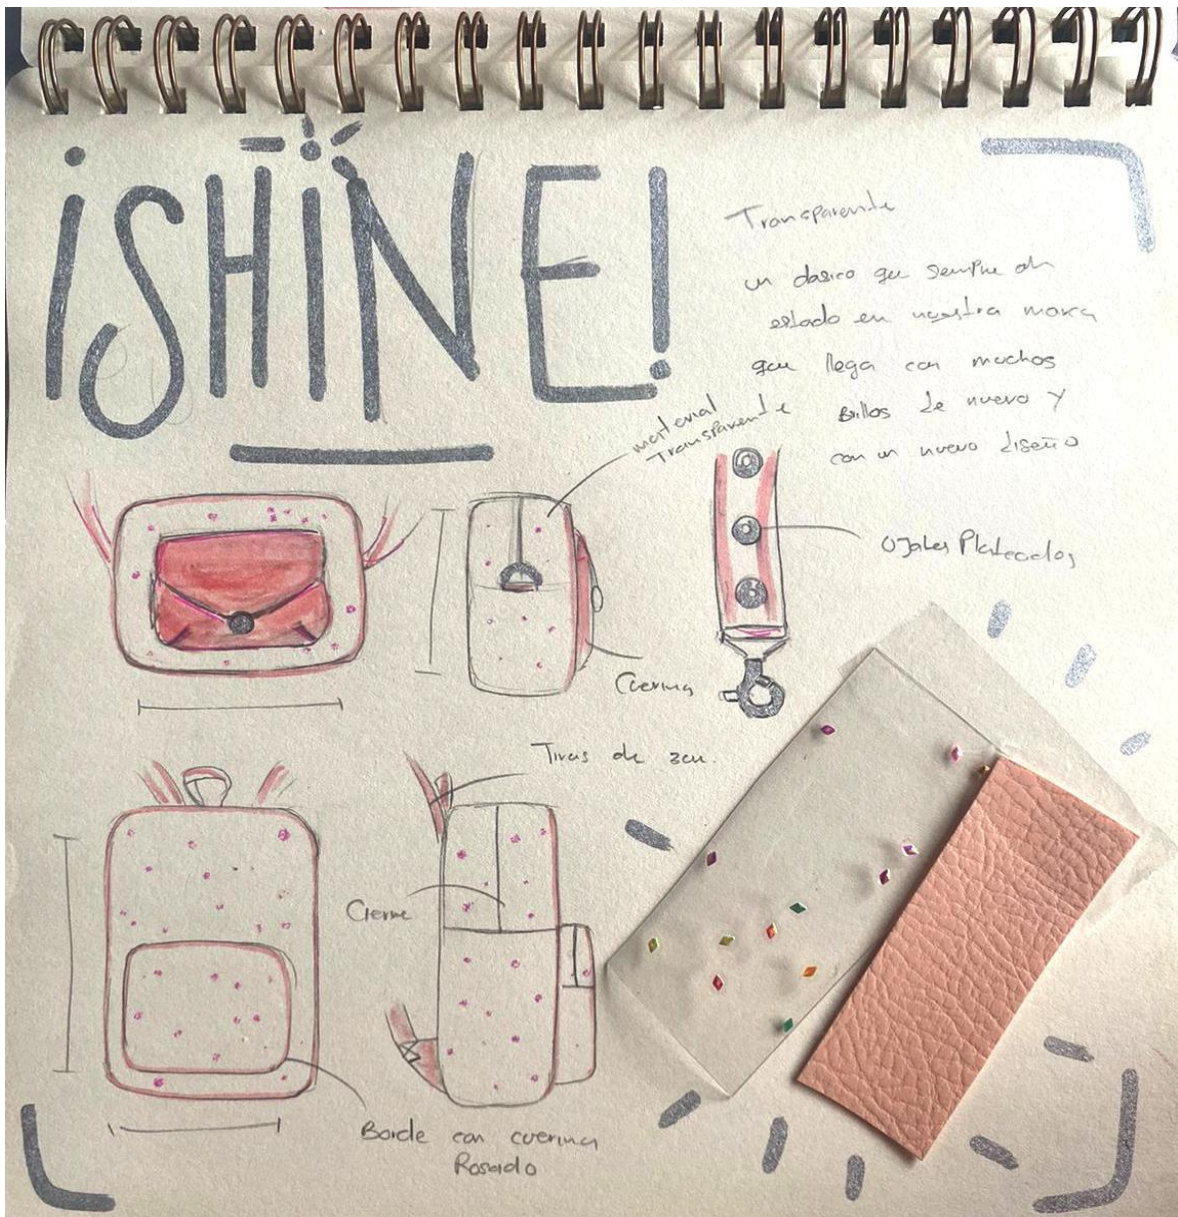 ¡SHINE!
Transparente
un clasico que sempre ah
estado en nuestra marca
que llega con muchos
Brillos de nuevo y
con un nuevo diseño
material
Transparente
Ojales Plateados
Cuerina
Tiras de
Cierre
Borde con cuerina
Rosado